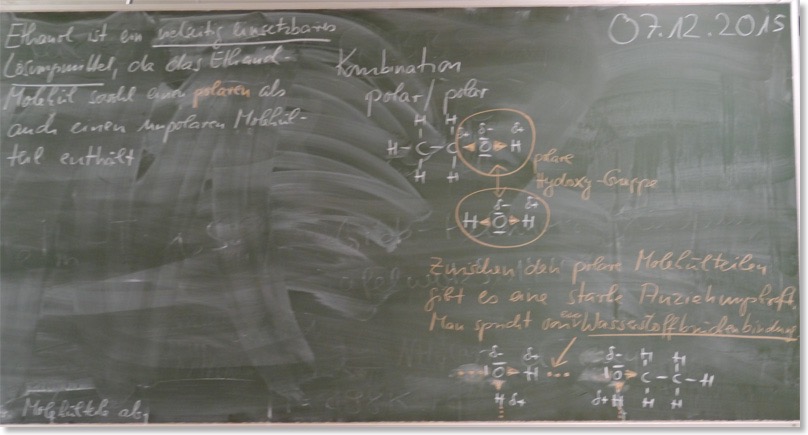 07.12.2015
Ethanol ist ein vielseitig einsetzbares
Lösungsmittel, da das Ethanol-
Molekül sowohl einen polaren als
auch einen unpolaren Molekül-
teil enthält
Kombination
polar/polar
H H
δ+ δ- δ+
H-C-C O H
H H
polare
Hydroxy-Gruppe
δ- δ+
H O H
Zwischen den polare Molekülteilen
gibt es eine starke Anziehungskraft.
Man spricht von Wasserstoffbrückenbindung
δ- δ+ δ- H H
O H ... O C-C-H
H δ+ δ+ H H H
Molekülteile ab